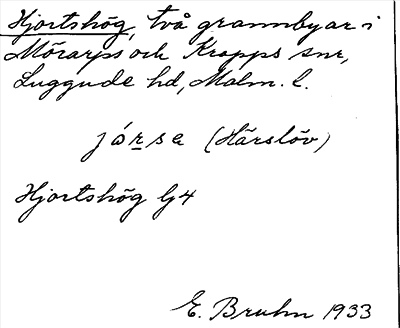 Hjortshög, två grannbyar i
Mörarps och Kropps snr,
Luggude hd, Malm. l.
jórsa (Härslöv)
Hjortshög lj4
E. Bruhn 1933